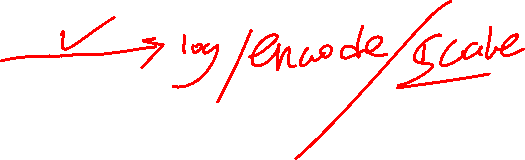 ✓→ log/encode/scale